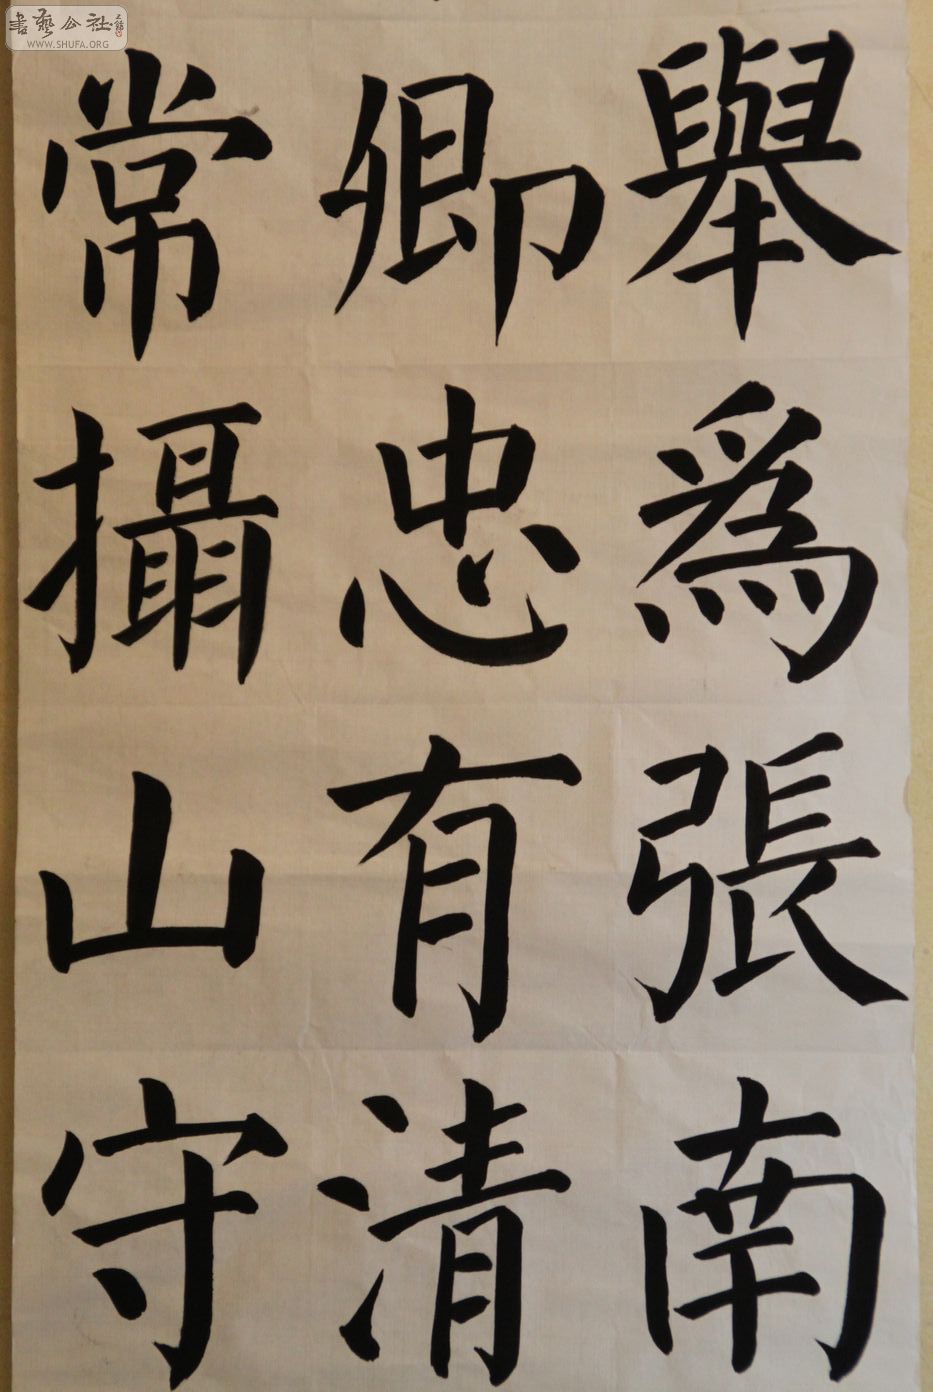 舉為張南
卿忠有清
常攝山守
書藝公社
WWW.SHUFA.ORG